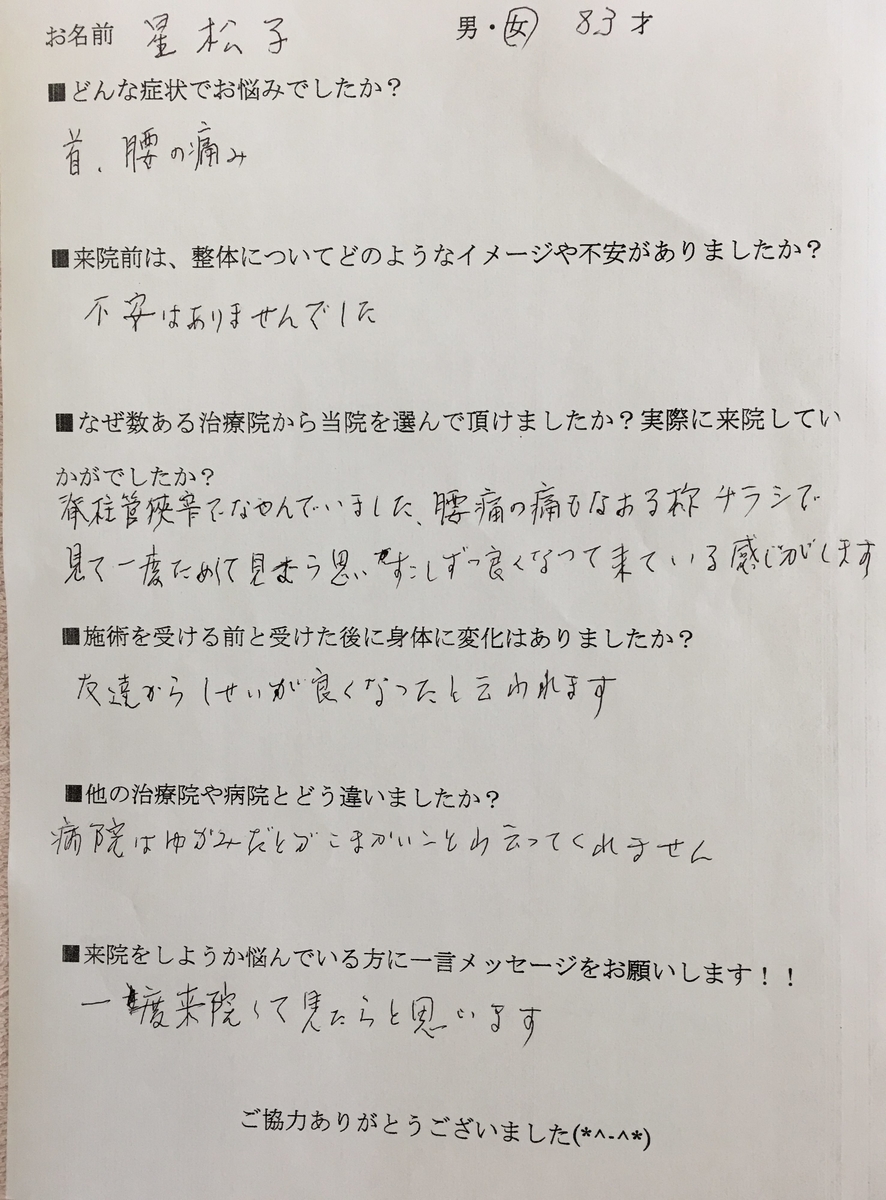 お名前 星 松子 男・女 83才
■どんな症状でお悩みでしたか？
首、腰の痛み
■来院前は、整体についてどのようなイメージや不安がありましたか？
不安はありませんでした
■なぜ数ある治療院から当院を選んで頂けましたか？実際に来院してい
かがでしたか？
脊柱管狭窄でなやんでいました、腰痛の痛もなおる様チラシで
見て一度ためして見まう思いですこしずつ良くなって来ている感じがします
■施術を受ける前と受けた後に身体に変化はありましたか？
友達からしせいが良くなったと云われます
■他の治療院や病院とどう違いましたか？
病院はゆがみだとかこまかいことわ云ってくれません
■来院をしようか悩んでいる方に一言メッセージをお願いします！！
一度来院して見たらと思います
ご協力ありがとうございました(*^-^*)